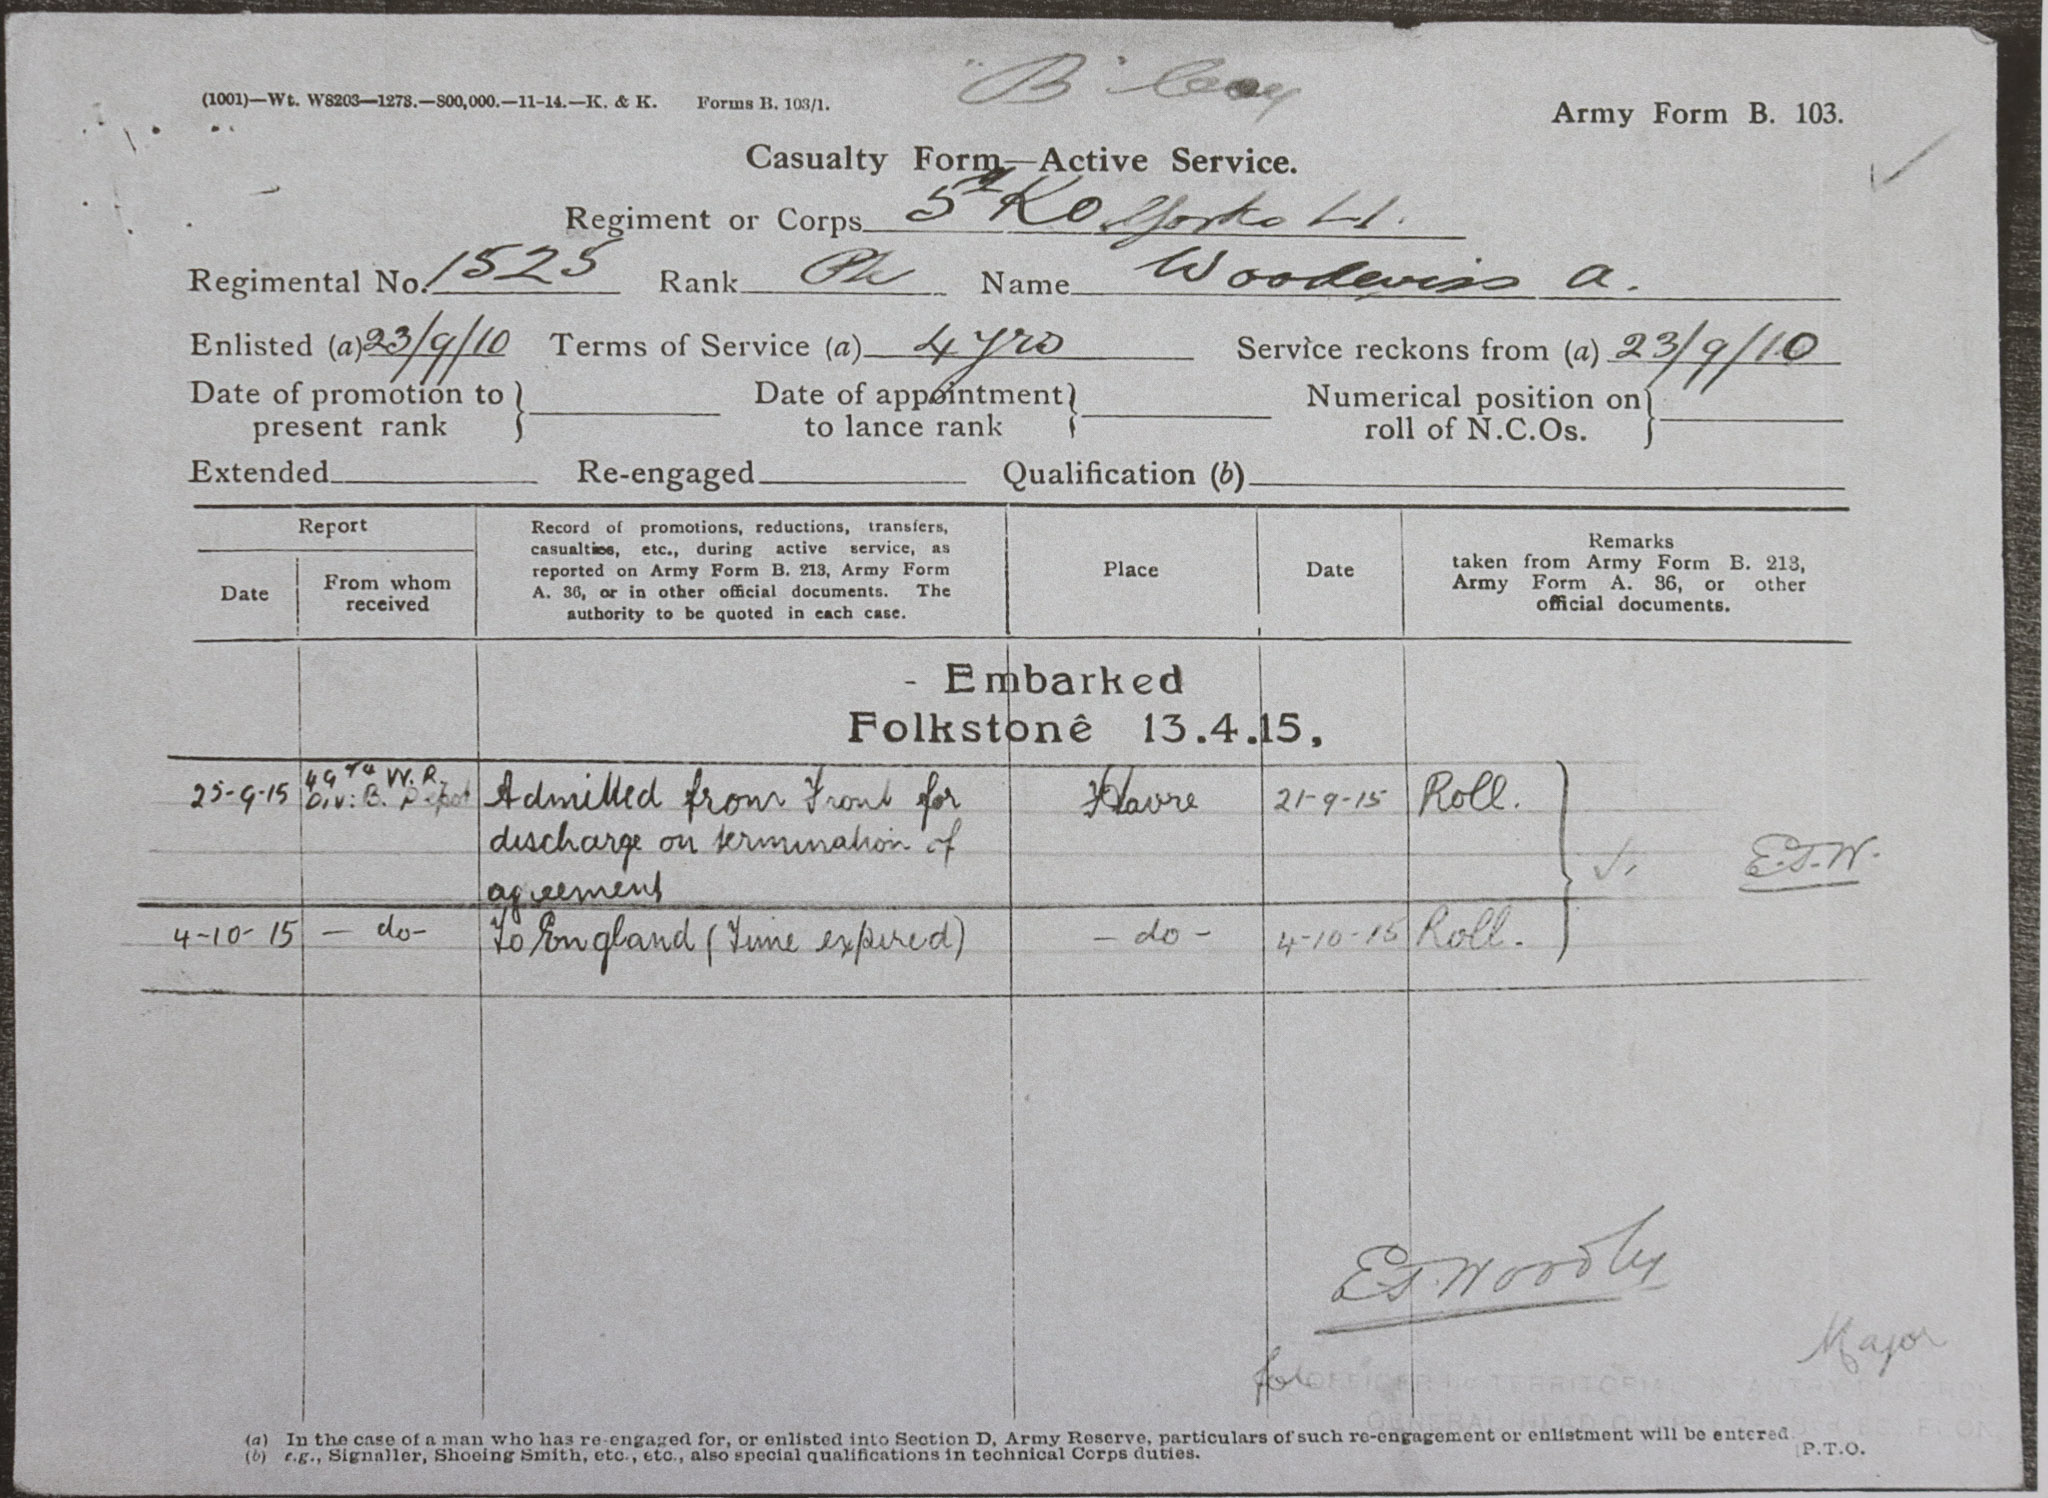 (1001)—Wt. W8203—1273.—800,000.—11-14.—K. & K. Forms B. 103/1.
"B" Coy
Army Form B. 103.
Casualty Form—Active Service.
Regiment or Corps 5th KO Yorks L I.
Regimental No. 1525 Rank Pte Name Woodewiss A.
Enlisted (a) 23/9/10 Terms of Service (a) 4 yrs Service reckons from (a) 23/9/10
Date of promotion to present rank } Date of appointment to lance rank } Numerical position on roll of N.C.Os. }
Extended Re-engaged Qualification (b)
Report
Date
From whom received
Record of promotions, reductions, transfers,
casualties, etc., during active service, as
reported on Army Form B. 213, Army Form
A. 36, or in other official documents. The
authority to be quoted in each case.
Place
Date
Remarks
taken from Army Form B. 213,
Army Form A. 36, or other
official documents.
- Embarked
Folkstonê 13.4.15,
25-9-15 49th W.R. Div: B. Depot Admitted from Front for Havre 21-9-15 Roll.
discharge on termination of
agreement
E.T.W.
4-10-15 — do - To England (Time expired) - do - 4-10-15 Roll.
Major
for OFFICER I/c TERRITORIAL
GENERAL HEAD QUARTERS
(a) In the case of a man who has re-engaged for, or enlisted into Section D, Army Reserve, particulars of such re-engagement or enlistment will be entered.
(b) e.g., Signaller, Shoeing Smith, etc., etc., also special qualifications in technical Corps duties.
[P.T.O.